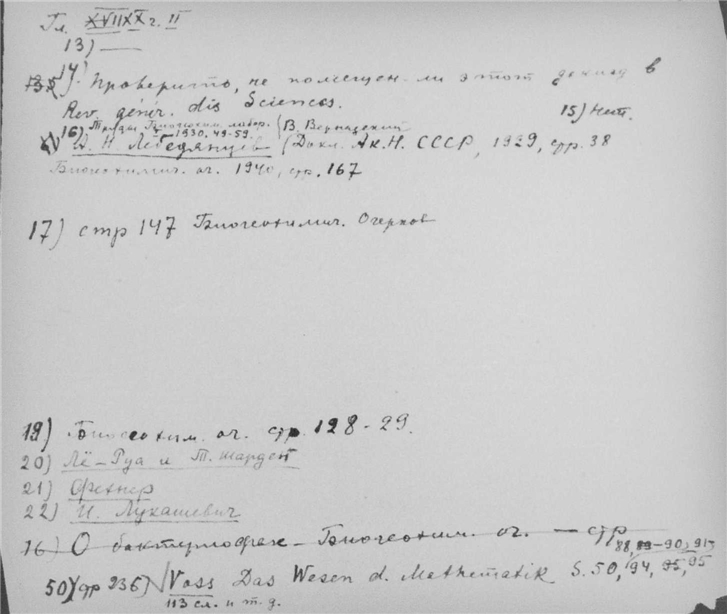 Гл. XVIIXX г. II
13) —
14) Проверить, не помещен ли этот доклад в
Rev. génér. dis Sciences.
15) Нет.
Труды Биогеохим. лабор. 1930, 49-59.
16) Д. Н. Лебедянцев (В. Вернадский Докл. Ак. Н. СССР, 1929, стр. 38
Биогеохимич. оч. 1940, стр. 167
17) стр 147 Биогеохимич. Очерков
19) Биогеохим. оч. стр. 128-29.
20) Лё-Руа и Т. Шарден
21) Фехнер
22) И. Лукашевич
16) О бактериофаге - Биогеохим. оч. — стр
88, 89-90, 91,
50) стр 236) Voss Das Wesen d. Mathematik S. 50, 94, 95, 95
113 сл. и т. д.